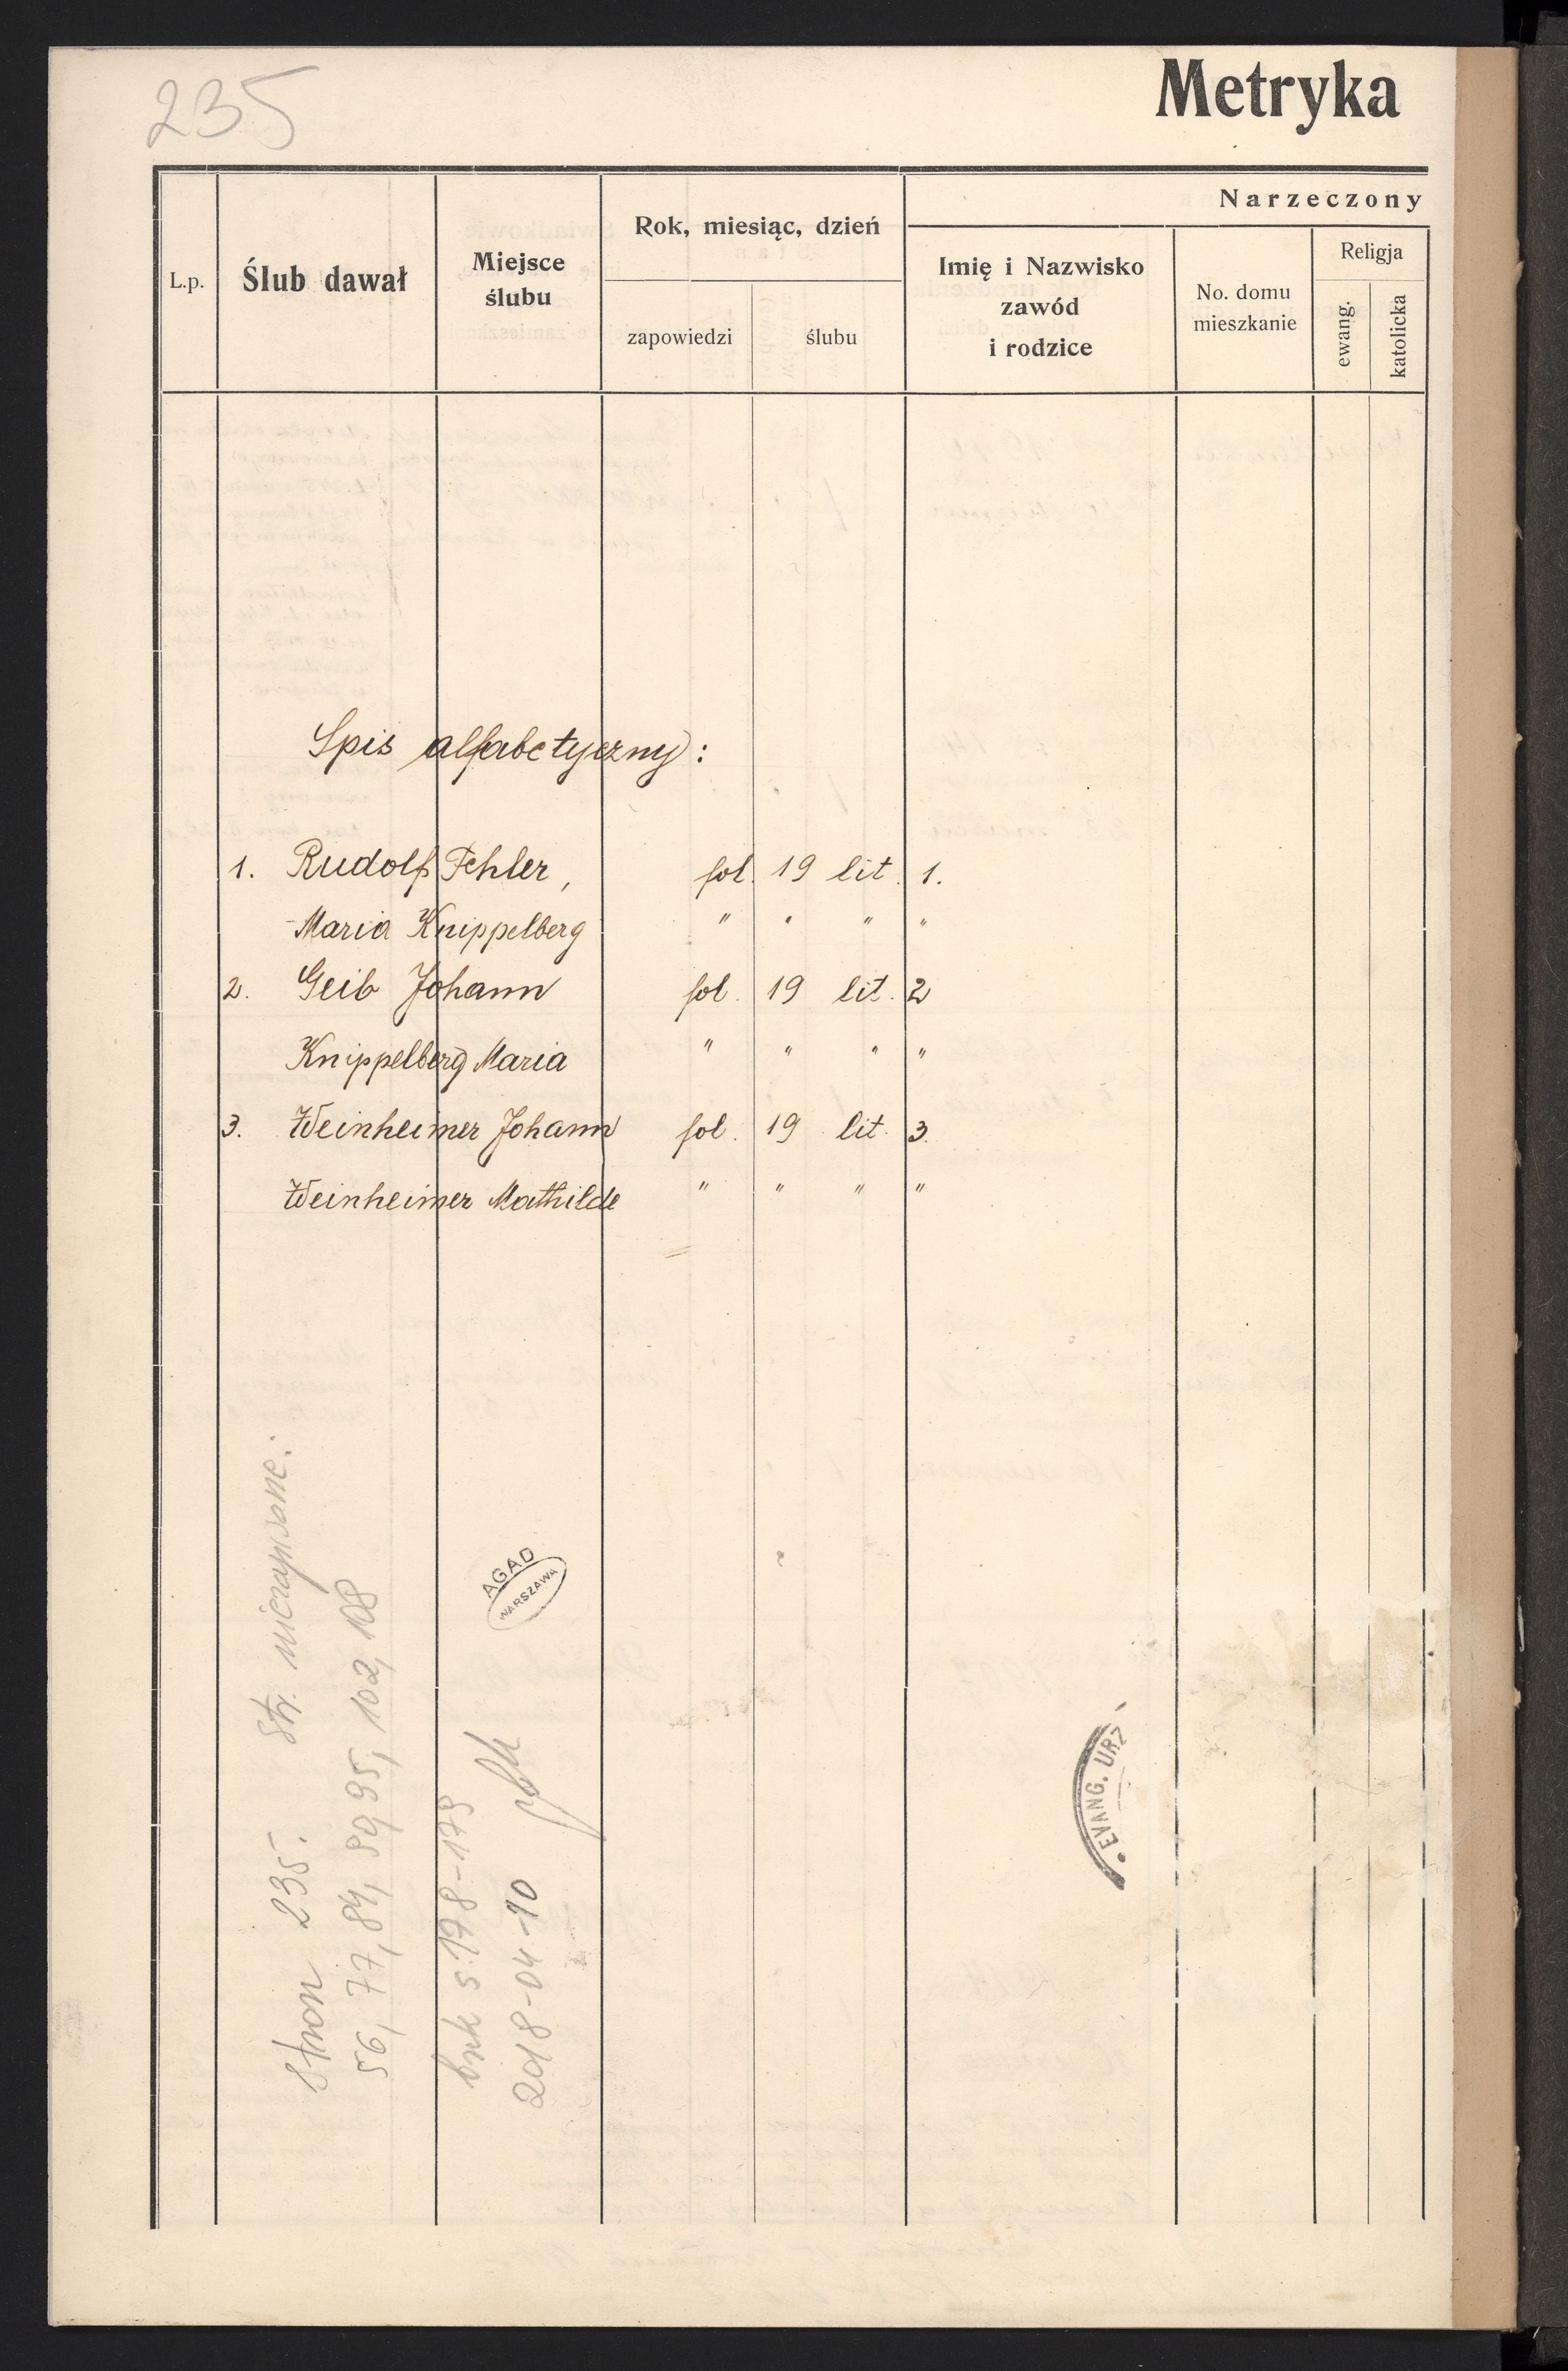 235
Metryka
L.p.
Ślub dawał
Miejsce
ślubu
Rok, miesiąc, dzień
zapowiedzi
ślubu
Narzeczony
Imię i Nazwisko
zawód
i rodzice
No. domu
mieszkanie
Religja
ewang.
katolicka
Spis alfabetyczny:
1. Rudolf Fehler, fol. 19 lit. 1.
Maria Knippelberg " " " "
2. Geib Johann fol. 19 lit. 2
Knippelberg Maria " " " "
3. Weinheimer Johann fol. 19 lit. 3.
Weinheimer Mathilde " " " "
Stron 235. Str. niezapisane:
56, 77, 84, 90, 95, 102, 108
brak s. 178-179
2018-04-10
AGAD
WARSZAWA
EVANG. URZ